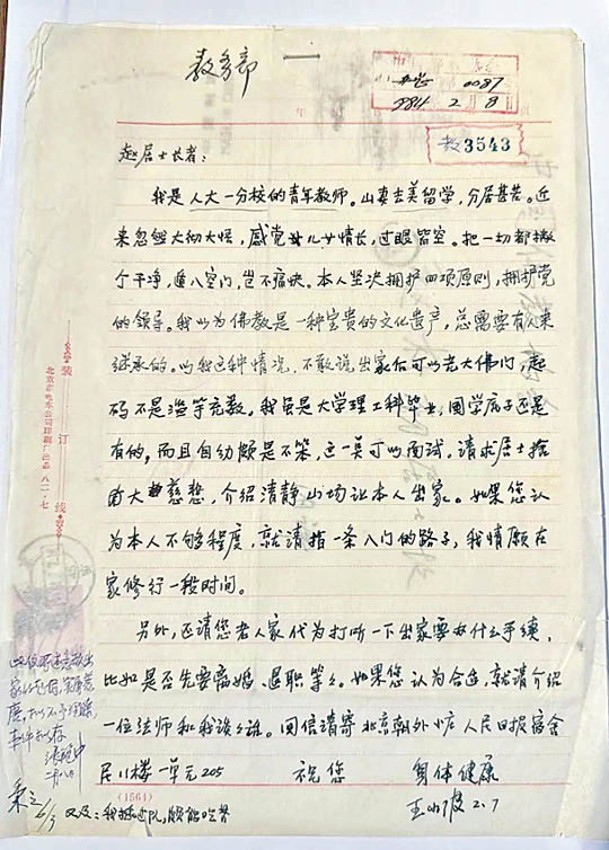 教务部
1984 2月8
教3543
赵居士长者：
我是人大一分校的青年教师。山妻去美留学，分居甚苦。近
来忽然大彻大悟，感觉儿女情长，过眼皆空。把一切都撇
个干净，遁入空门，岂不痛快。本人坚决拥护四项原则，拥护党
的领导。我以为佛教是一种宝贵的文化遗产，总需要有人来
继承的。以我这种情况，不敢说出家后可以光大佛门，起
码不是滥竽充数。我虽是大学理工科毕业，国学底子还是
有的，而且自幼颇是不笨，这一莫可以面试。请求居士发
大慈悲，介绍清静山场让本人出家。如果您认
为本人不够程度，就请指一条入门的路子，我情愿在
家修行一段时间。
另外，还请您老人家代为打听一下出家要办什么手续，
比如是否先要离婚、退职等等。如果您认为合适，就请介绍
一位法师和我谈谈。回信请寄北京朝外 人民日报宿舍
尼川楼一单元205 祝您 身体健康
王小波 2.7
又及：我插过队，颇能吃苦
(1564)
装订线
北京市电车公司印刷厂出品 八二·七
二月八日